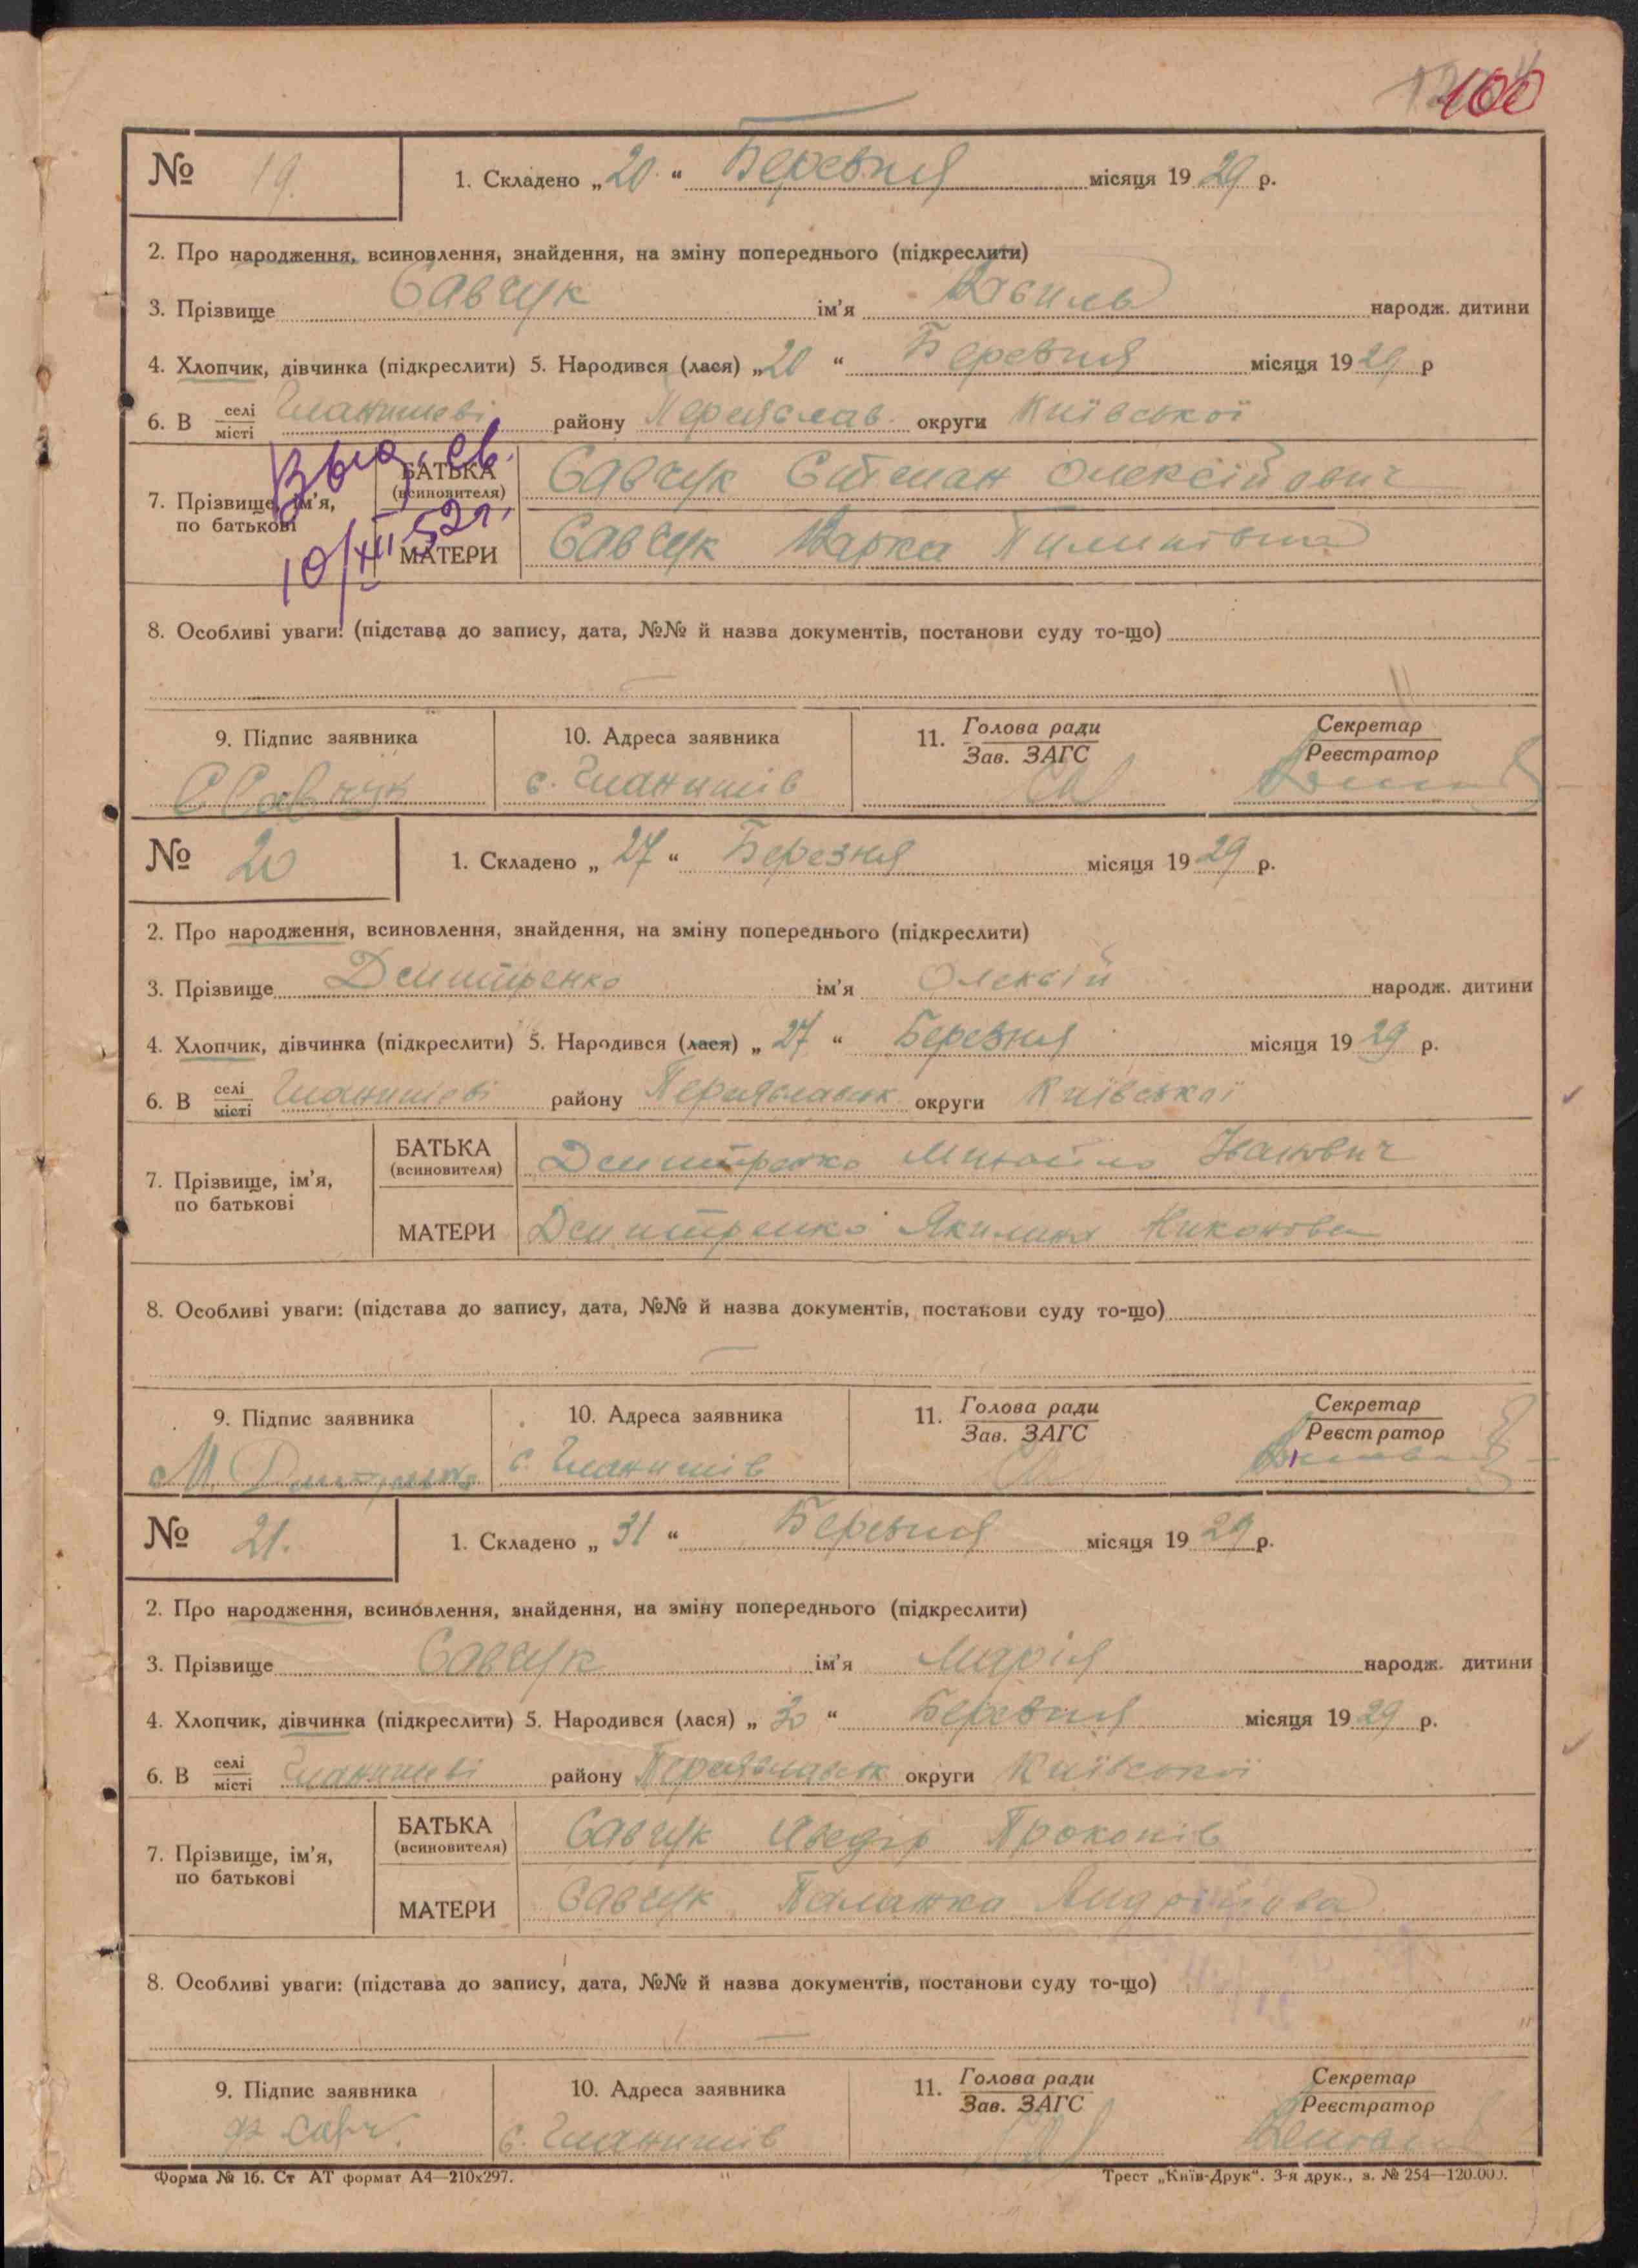 100
№ 19. 1. Складено „20“ Березня місяця 1929 р.
2. Про народження, всиновлення, знайдення, на зміну попереднього (підкреслити)
3. Прізвище Савчук ім'я Василь народж. дитини
4. Хлопчик, дівчинка (підкреслити) 5. Народився (лася) „20“ Березня місяця 1929 р
6. В селі місті Гланишеві району Переяслав. округи Київської
7. Прізвище, ім'я, по батькові
БАТЬКА (всиновителя) Савчук Степан Олексійович
МАТЕРИ Савчук Варка Пилипівна
Выд. св.
10/XII 52 г.
8. Особливі уваги: (підстава до запису, дата, №№ й назва документів, постанови суду то-що)
9. Підпис заявника 10. Адреса заявника 11. Голова ради Зав. ЗАГС Секретар Реєстратор
С Савчук с. Гланишів
№ 20 1. Складено „27“ Березня місяця 1929 р.
2. Про народження, всиновлення, знайдення, на зміну попереднього (підкреслити)
3. Прізвище Дмитренко ім'я Олексій народж. дитини
4. Хлопчик, дівчинка (підкреслити) 5. Народився (лася) „27“ Березня місяця 1929 р.
6. В селі місті Гланишеві району Переяславськ округи Київської
7. Прізвище, ім'я, по батькові
БАТЬКА (всиновителя) Дмитренко Михайло Іванович
МАТЕРИ Дмитренко Якилина Никонова
8. Особливі уваги: (підстава до запису, дата, №№ й назва документів, постанови суду то-що)
9. Підпис заявника 10. Адреса заявника 11. Голова ради Зав. ЗАГС Секретар Реєстратор
М. Дмитренко с. Гланишів
№ 21. 1. Складено „31“ Березня місяця 1929 р.
2. Про народження, всиновлення, знайдення, на зміну попереднього (підкреслити)
3. Прізвище Савчук ім'я Марія народж. дитини
4. Хлопчик, дівчинка (підкреслити) 5. Народився (лася) „30“ Березня місяця 1929 р.
6. В селі місті Гланишеві району Переяславськ округи Київської
7. Прізвище, ім'я, по батькові
БАТЬКА (всиновителя) Савчук Хведір Прокопів
МАТЕРИ Савчук Палажка
8. Особливі уваги: (підстава до запису, дата, №№ й назва документів, постанови суду то-що)
9. Підпис заявника 10. Адреса заявника 11. Голова ради Зав. ЗАГС Секретар Реєстратор
Ф Савч. с. Гланишів
Форма № 16. Ст АТ формат А4—210х297. Трест „Київ-Друк“. 3-я друк., з. № 254—120.000.